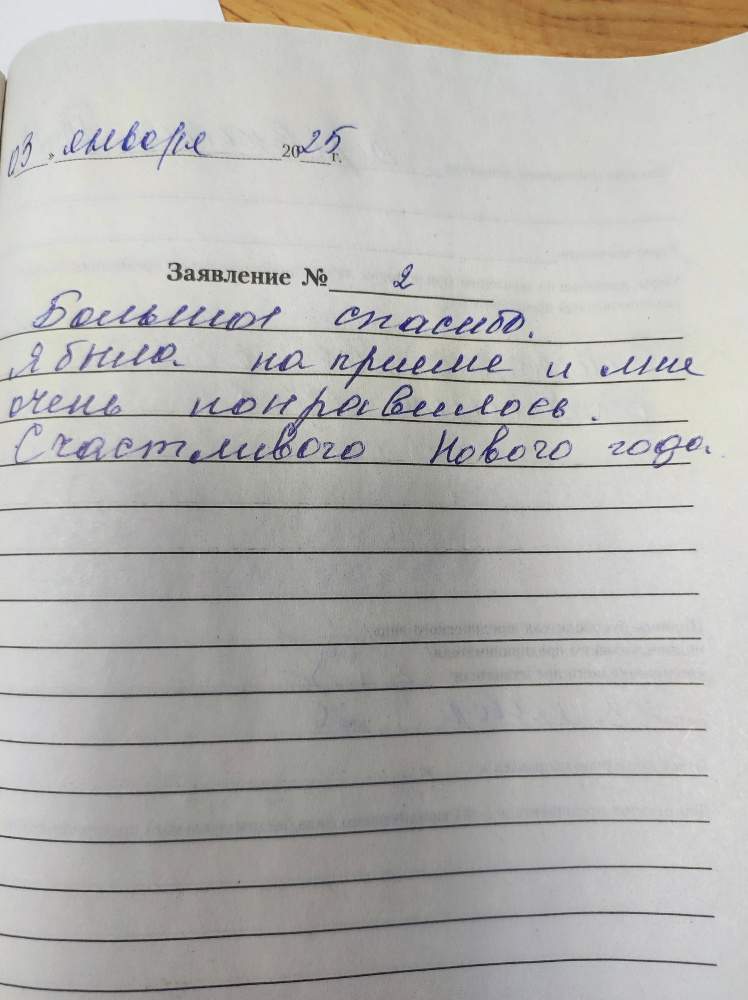 03 » января 2025 г.
Заявление № 2
Большое спасибо.
Я была на приеме и мне
очень понравилось.
Счастливого Нового года.